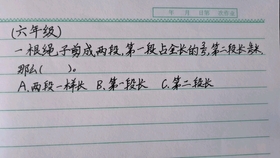 年 月 日
(六年级)
一根绳子剪成两段,第一段占全长的,第二段长米,
那么( )。
A.两段一样长 B.第一段长 C.第二段长